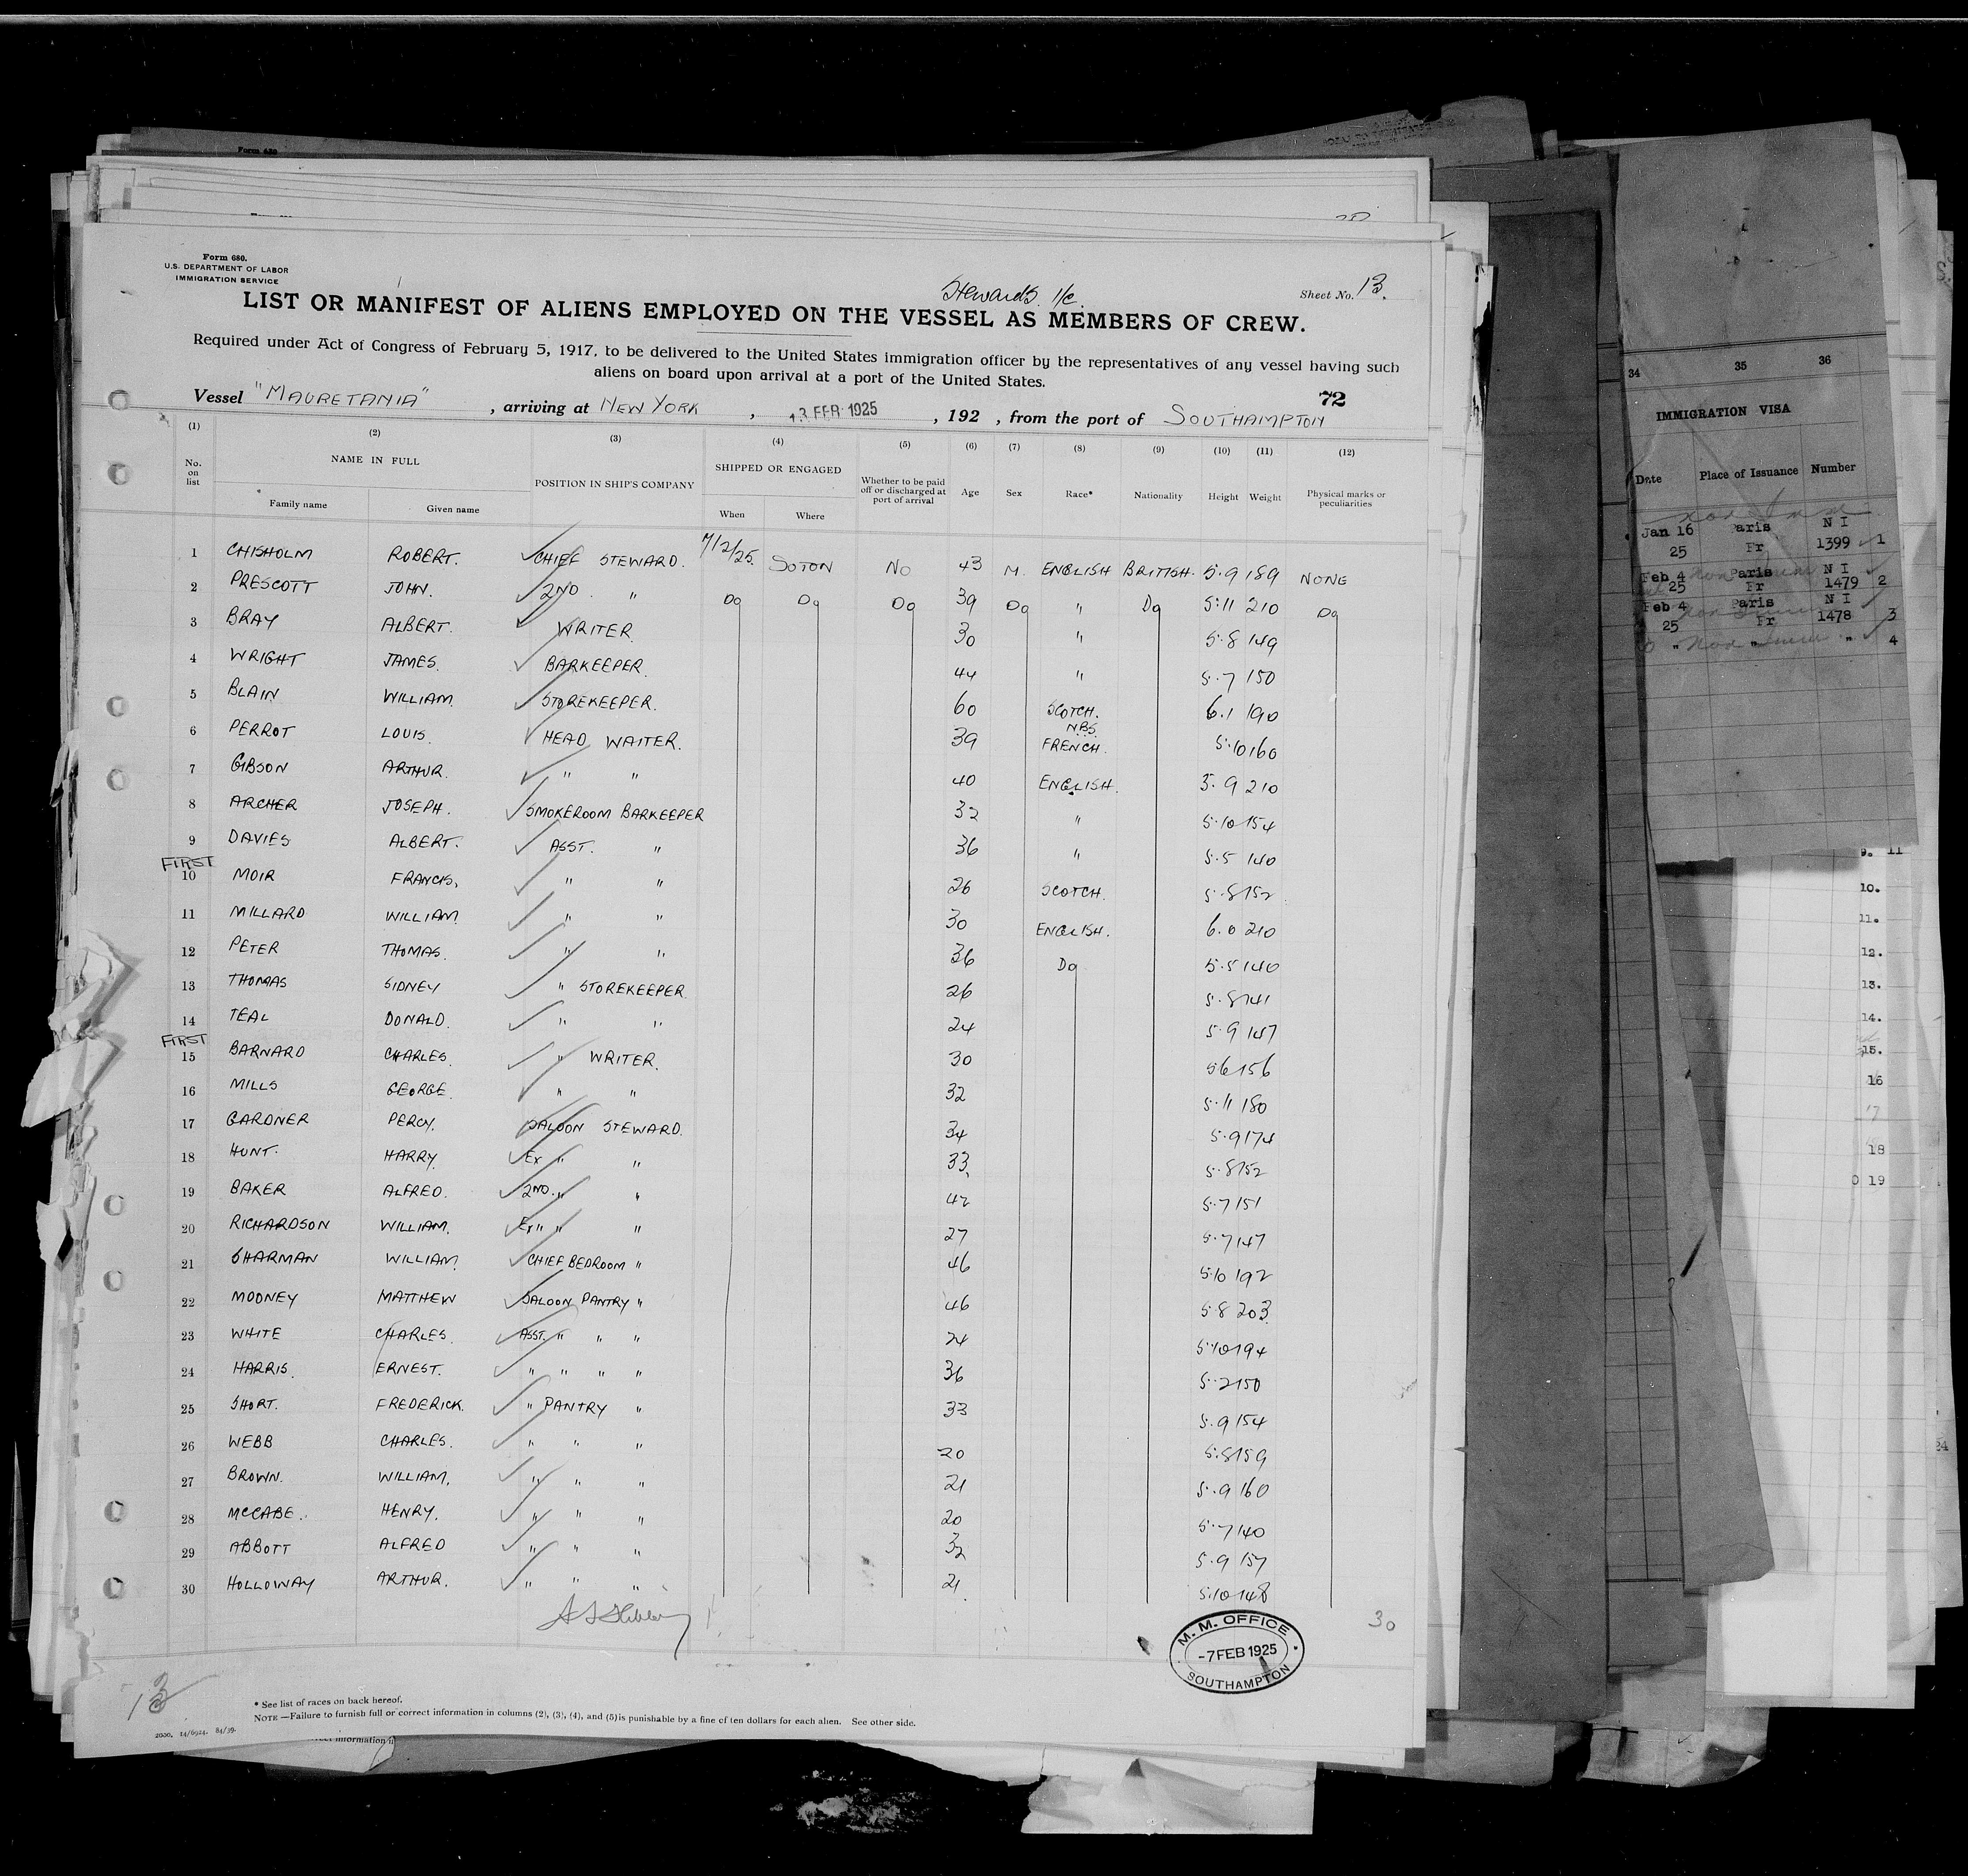 Form 680
Form 680.
U.S. DEPARTMENT OF LABOR
IMMIGRATION SERVICE
Stewards. 1/c.
Sheet No. 13.
LIST OR MANIFEST OF ALIENS EMPLOYED ON THE VESSEL AS MEMBERS OF CREW.
Required under Act of Congress of February 5, 1917, to be delivered to the United States immigration officer by the representatives of any vessel having such
aliens on board upon arrival at a port of the United States.
72
Vessel "MAURETANIA", arriving at NEW YORK, 13 FEB 1925, 192 , from the port of SOUTHAMPTON
(1) (2) (3) (4) (5) (6) (7) (8) (9) (10) (11) (12)
No. on list NAME IN FULL Family name Given name POSITION IN SHIP'S COMPANY SHIPPED OR ENGAGED When Where Whether to be paid off or discharged at port of arrival Age Sex Race* Nationality Height Weight Physical marks or peculiarities
1 CHISHOLM ROBERT. CHIEF STEWARD. 7/2/25. SOTON NO 43 M. ENGLISH BRITISH. 5.9 189 NONE
2 PRESCOTT JOHN. 2ND. " Do Do Do 39 Do " Do 5.11 210 Do
3 BRAY ALBERT. WRITER. 30 " 5.8 149
4 WRIGHT JAMES. BARKEEPER. 44 " 5.7 150
5 BLAIN WILLIAM. STOREKEEPER. 60 SCOTCH. 6.1 190
6 PERROT LOUIS. HEAD WAITER. 39 N.B.S. FRENCH. 5.10 160
7 GIBSON ARTHUR. " " 40 ENGLISH. 5.9 210
8 ARCHER JOSEPH. SMOKEROOM BARKEEPER 32 " 5.10 154
9 DAVIES ALBERT. ASST. " 36 " 5.5 140
FIRST
10 MOIR FRANCIS, " " 26 SCOTCH. 5.8 152
11 MILLARD WILLIAM " " 30 ENGLISH. 6.0 210
12 PETER THOMAS. " " 36 Do 5.5 140
13 THOMAS SIDNEY " STOREKEEPER. 26 5.8 141
14 TEAL DONALD. " " 24 5.9 147
FIRST
15 BARNARD CHARLES. " WRITER. 30 5.6 156
16 MILLS GEORGE. " " 32 5.11 180
17 GARDNER PERCY. SALOON STEWARD. 34 5.9 174
18 HUNT. HARRY. Ex " " 33 5.8 152
19 BAKER ALFRED. 2ND. " " 42 5.7 151
20 RICHARDSON WILLIAM. Ex " " " 27 5.7 147
21 SHARMAN WILLIAM. CHIEF BEDROOM " 46 5.10 192
22 MOONEY MATTHEW SALOON PANTRY " 46 5.8 203
23 WHITE CHARLES. ASST. " " " 24 5.10 194
24 HARRIS. ERNEST. " " " " 36 5.2 150
25 SHORT. FREDERICK. " PANTRY " 33 5.9 154
26 WEBB CHARLES. " " " 20 5.8 159
27 BROWN. WILLIAM. " " " 21 5.9 160
28 MCCABE. HENRY. " " " 20 5.7 140
29 ABBOTT ALFRED " " " 32 5.9 157
30 HOLLOWAY ARTHUR. " " " 21. 5.10 148
30
M. M. OFFICE
-7 FEB 1925
SOUTHAMPTON
13
* See list of races on back hereof.
NOTE —Failure to furnish full or correct information in columns (2), (3), (4), and (5) is punishable by a fine of ten dollars for each alien. See other side.
2000. 14/6924. 84/39.
34 35 36
IMMIGRATION VISA
Date Place of Issuance Number
Jan 16 Paris N I
25 Fr 1399 1
Feb 4 Paris N I
25 Fr 1479 2
Feb 4 Paris N I
25 Fr 1478 3
" " " 4
9. 11
10.
11.
12.
13.
14.
15.
16
17
18
0 19
24